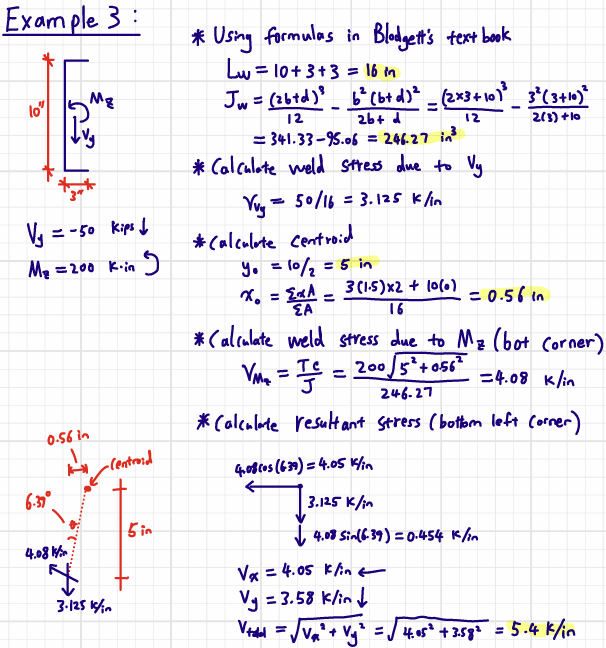 Example 3 :
10"
M_z
V_y
3"
V_y = -50 kips ↓
M_z = 200 k·in
* Using formulas in Blodgett's textbook
L_w = 10+3+3 = 16 in
J_w = (2b+d)³/12 - b²(b+d)²/(2b+d) = (2×3+10)³/12 - 3²(3+10)²/(2(3)+10)
= 341.33-95.06 = 246.27 in³
* Calculate weld stress due to V_y
V_Vy = 50/16 = 3.125 k/in
* Calculate centroid
y₀ = 10/2 = 5 in
x₀ = ΣxA/ΣA = (3(1.5)×2 + 10(0))/16 = 0.56 in
* Calculate weld stress due to M_z (bot corner)
V_Mz = Tc/J = 200√(5²+0.56²)/246.27 = 4.08 k/in
* Calculate resultant stress (bottom left corner)
0.56 in
centroid
6.39°
5 in
4.08 k/in
3.125 k/in
4.08cos(6.39) = 4.05 k/in
3.125 k/in
4.08 sin(6.39) = 0.454 k/in
V_x = 4.05 k/in ←
V_y = 3.58 k/in ↓
V_total = √(V_x² + V_y²) = √(4.05² + 3.58²) = 5.4 k/in